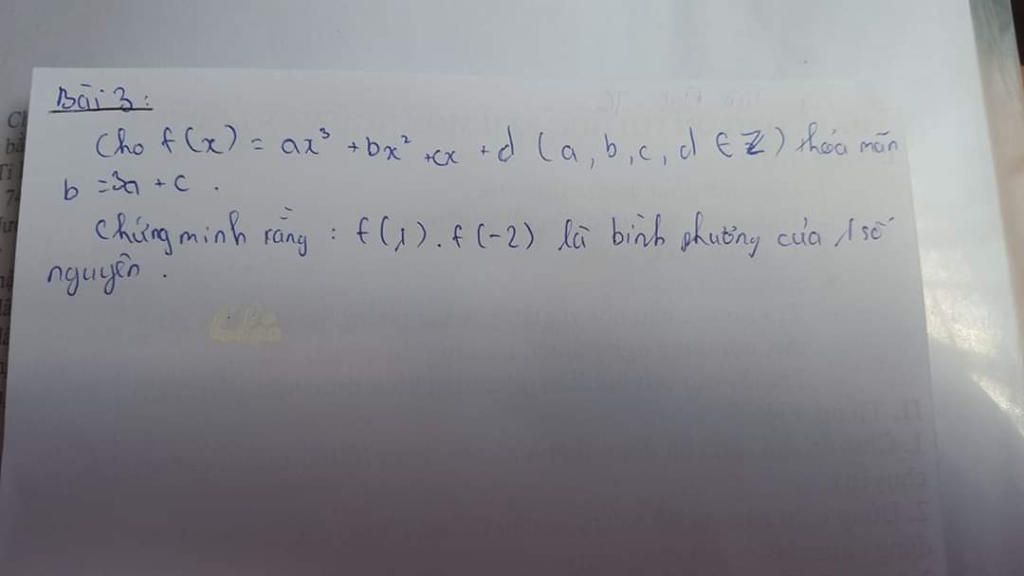 Bài 3:
Cho f(x) = ax³ + bx² + cx + d (a, b, c, d ∈ Z) thỏa mãn
b = 3a + c.
Chứng minh rằng: f(1).f(-2) là bình phương của 1 số
nguyên.